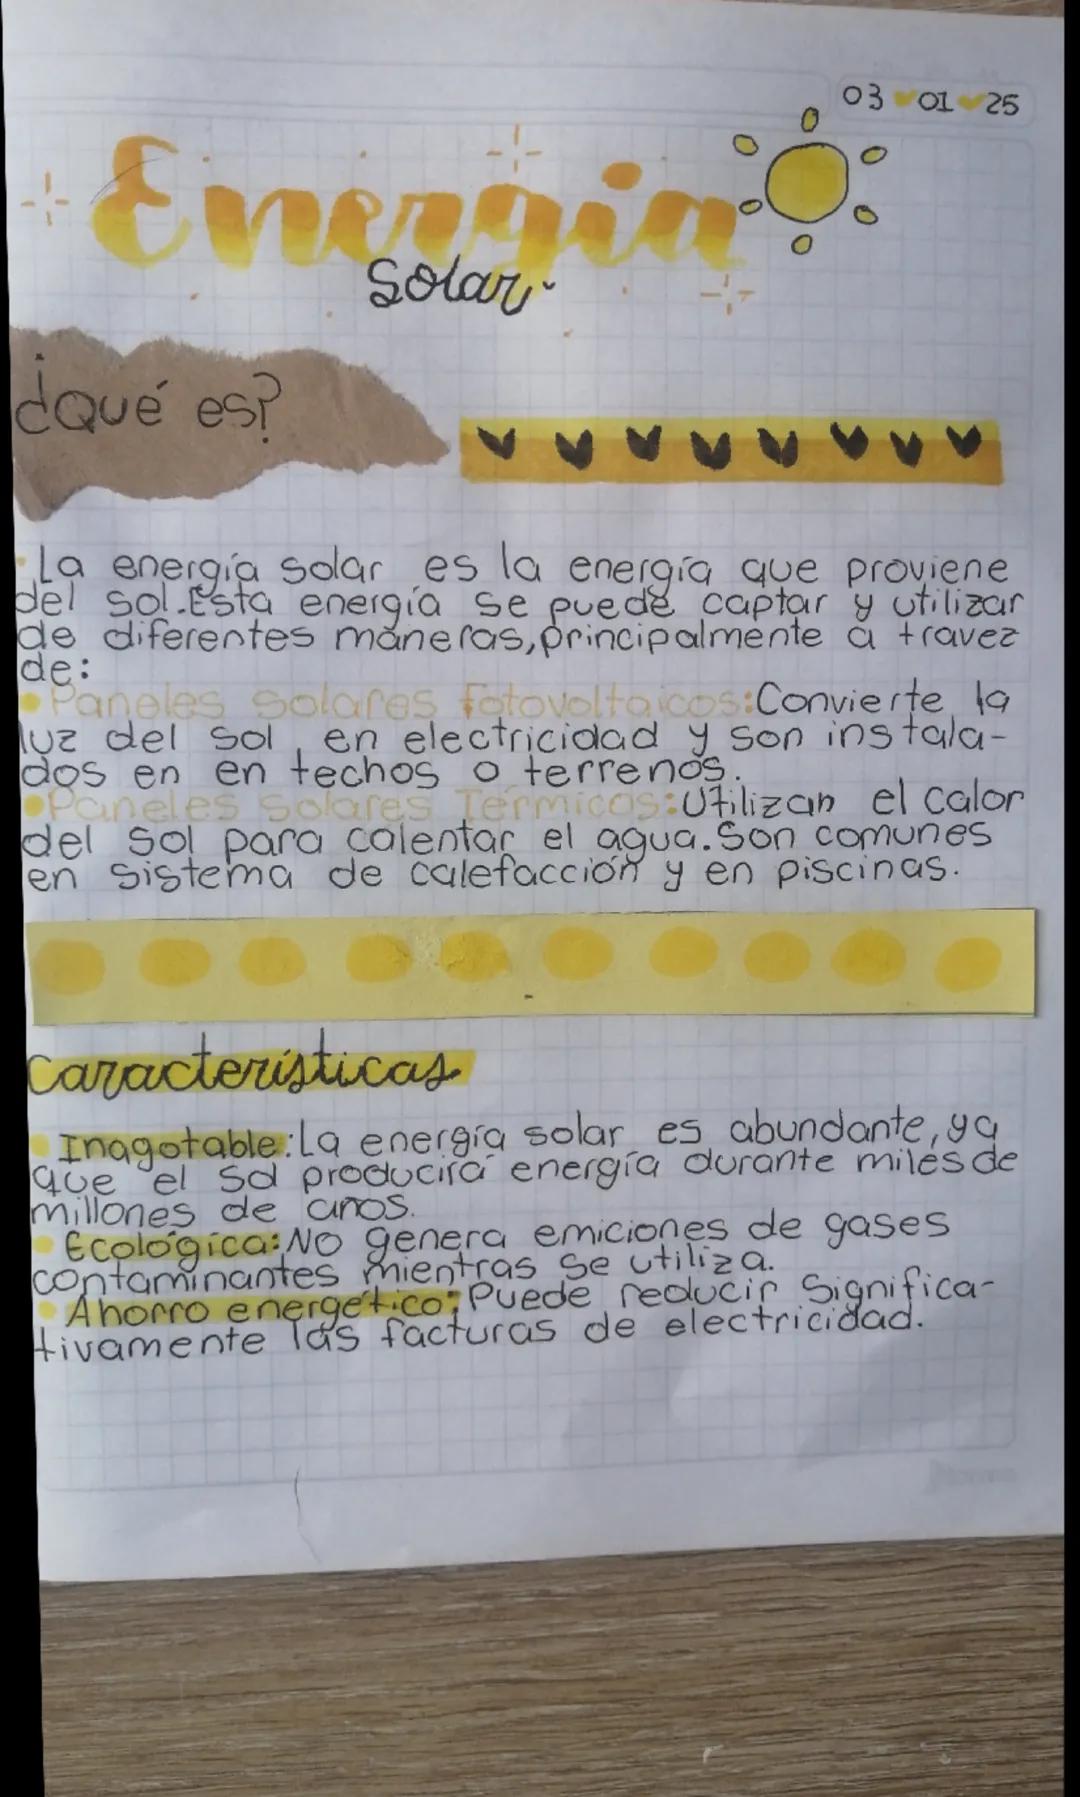 03 01 25
Energia
Solar
¿Qué es?
La energía solar es la energía que proviene
del sol. Esta energía se puede captar y utilizar
de diferentes maneras, principalmente a travez
de:
Paneles Solares fotovoltaicos: Convierte la
luz del sol, en electricidad y son instala-
dos en en techos o terrenos.
Paneles Solares Termicos: Utilizan el calor
del sol para calentar el agua. Son comunes
en sistema de calefacción y en piscinas.
Características
Inagotable: La energía solar es abundante, ya
que el sol producirá energía durante miles de
millones de años.
Ecológica: No genera emiciones de gases
contaminantes mientras se utiliza.
Ahorro energético: Puede reducir significa-
tivamente las facturas de electricidad.